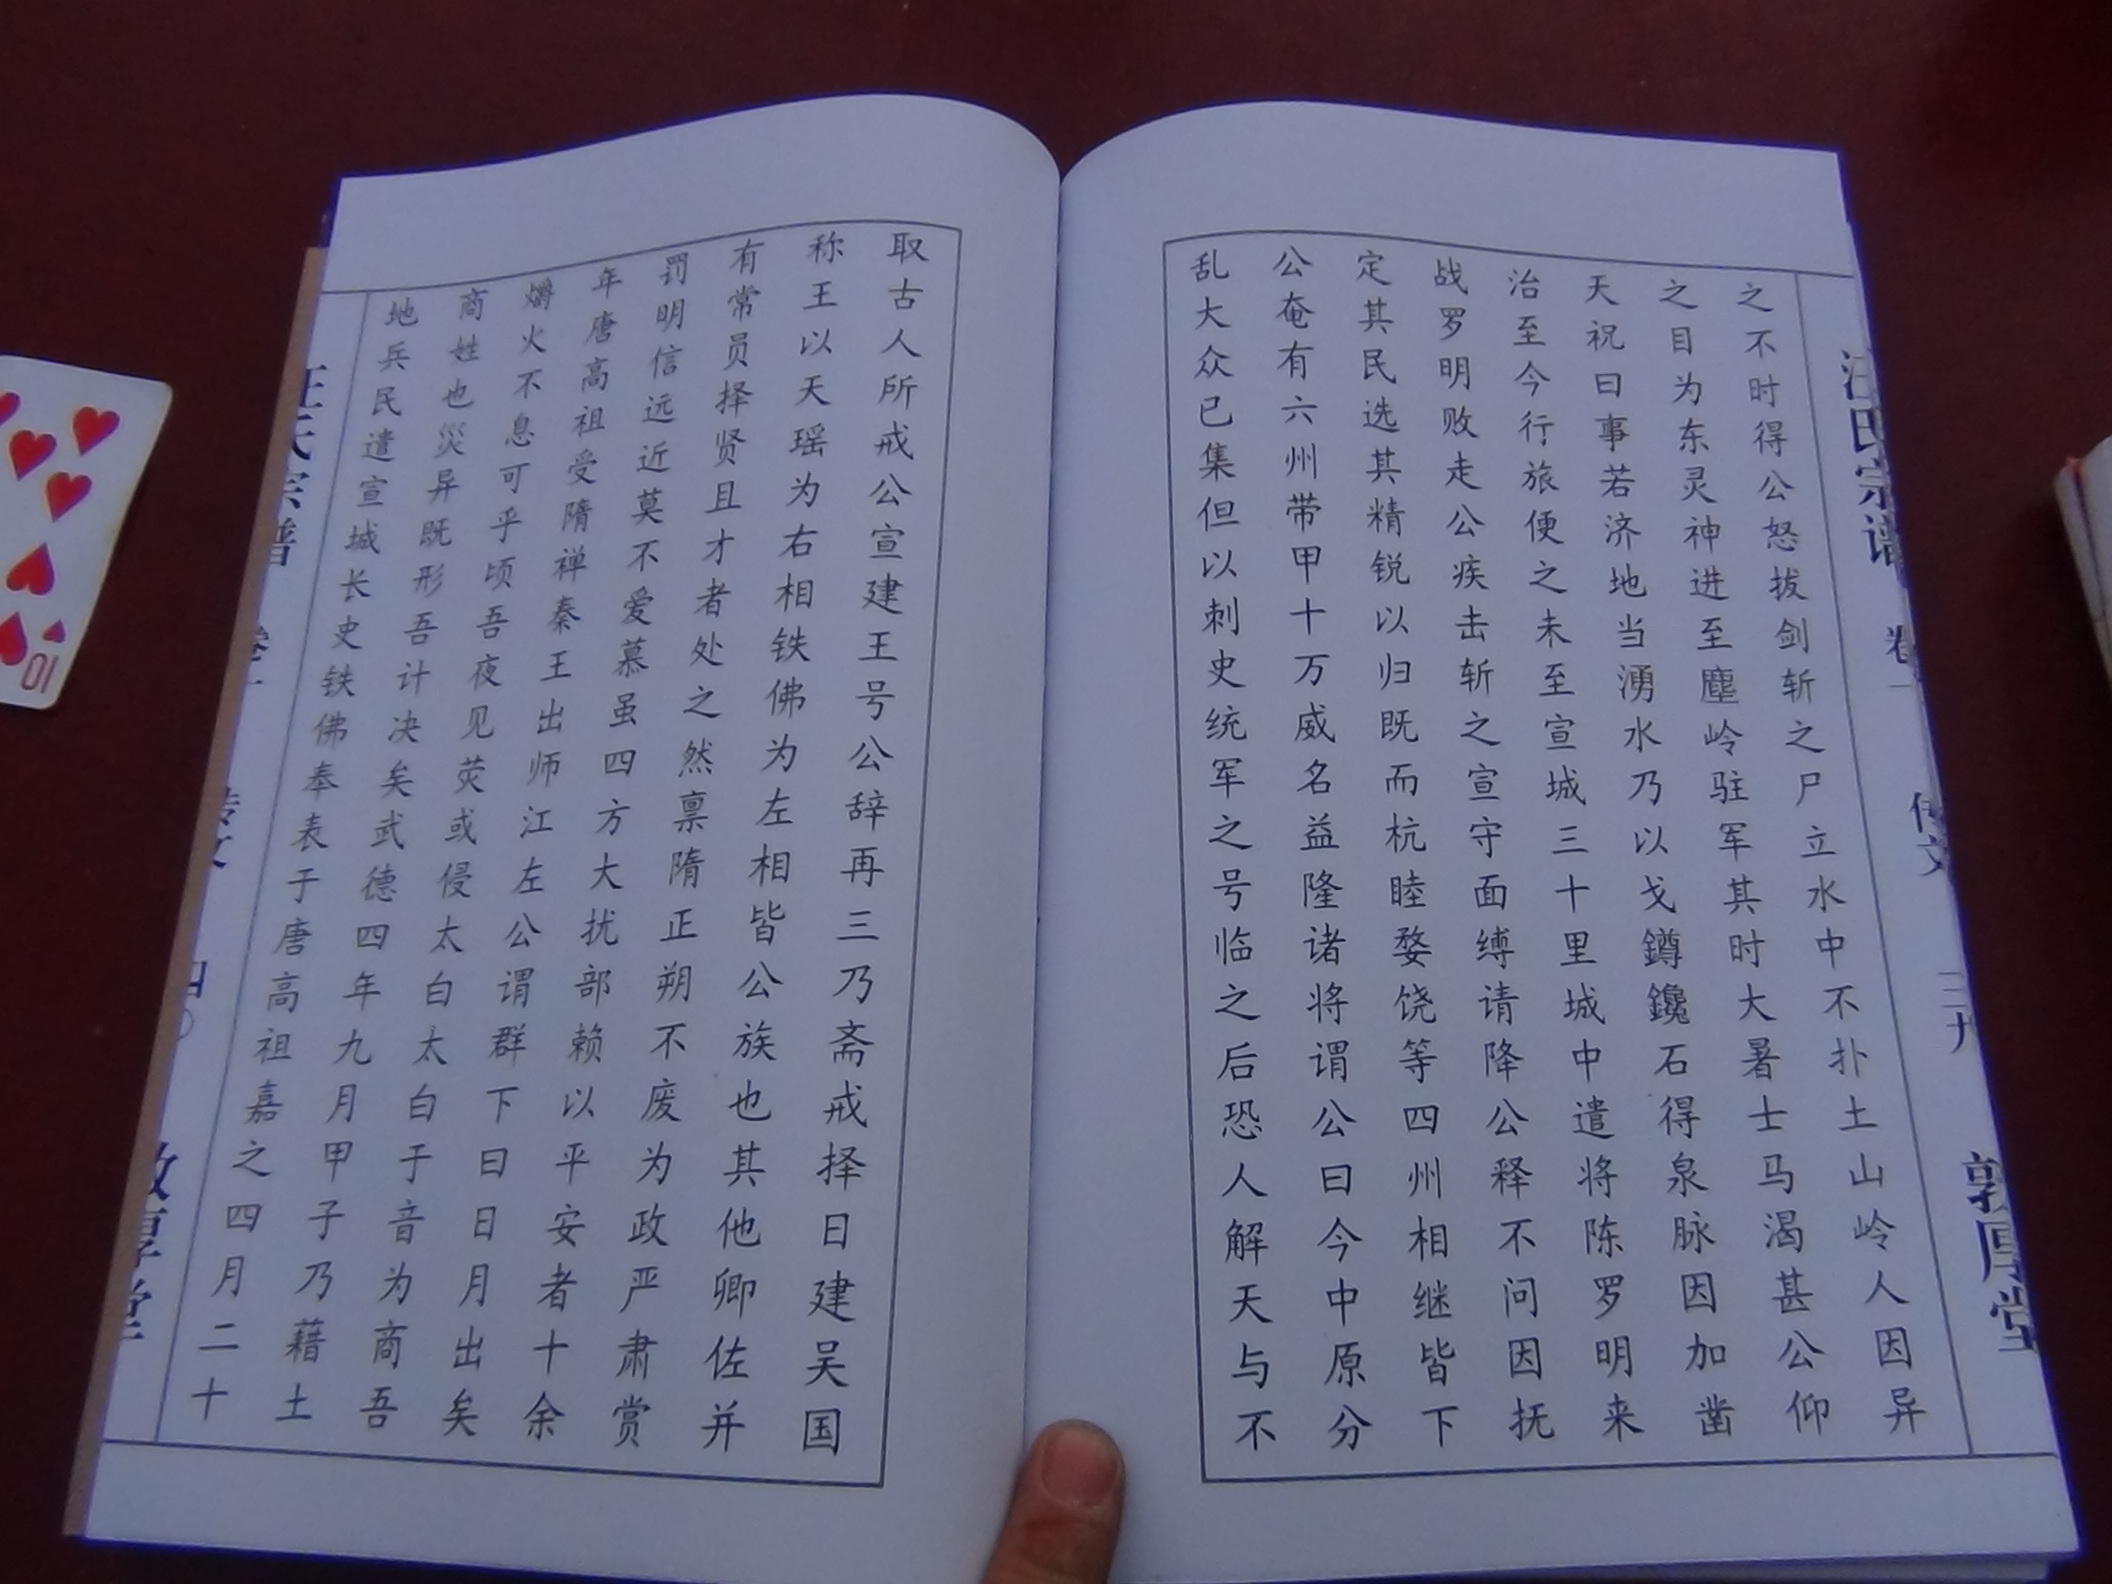 汪氏宗谱 卷一 传文 三九 敦厚堂
之不时得公怒拔剑斩之尸立水中不扑土山岭人因异
之目为东灵神进至塵岭驻军其时大暑士马渴甚公仰
天祝曰事若济地当湧水乃以戈鐏鑱石得泉脉因加凿
治至今行旅便之未至宣城三十里城中遣将陈罗明来
战罗明败走公疾击斩之宣守面缚请降公释不问因抚
定其民选其精锐以归既而杭睦婺饶等四州相继皆下
公奄有六州带甲十万威名益隆诸将谓公曰今中原分
乱大众已集但以刺史统军之号临之后恐人解天与不
取古人所戒公宣建王号公辞再三乃斋戒择日建吴国
称王以天瑶为右相铁佛为左相皆公族也其他卿佐并
有常员择贤且才者处之然禀隋正朔不废为政严肃赏
罚明信远近莫不爱慕虽四方大扰部赖以平安者十余
年唐高祖受隋禅秦王出师江左公谓群下曰日月出矣
爝火不息可乎顷吾夜见荧或侵太白太白于音为商吾
商姓也災异既形吾计决矣武德四年九月甲子乃藉土
地兵民遣宣城长史铁佛奉表于唐高祖嘉之四月二十
汪氏宗谱 卷一 传文 四〇 敦厚堂
10